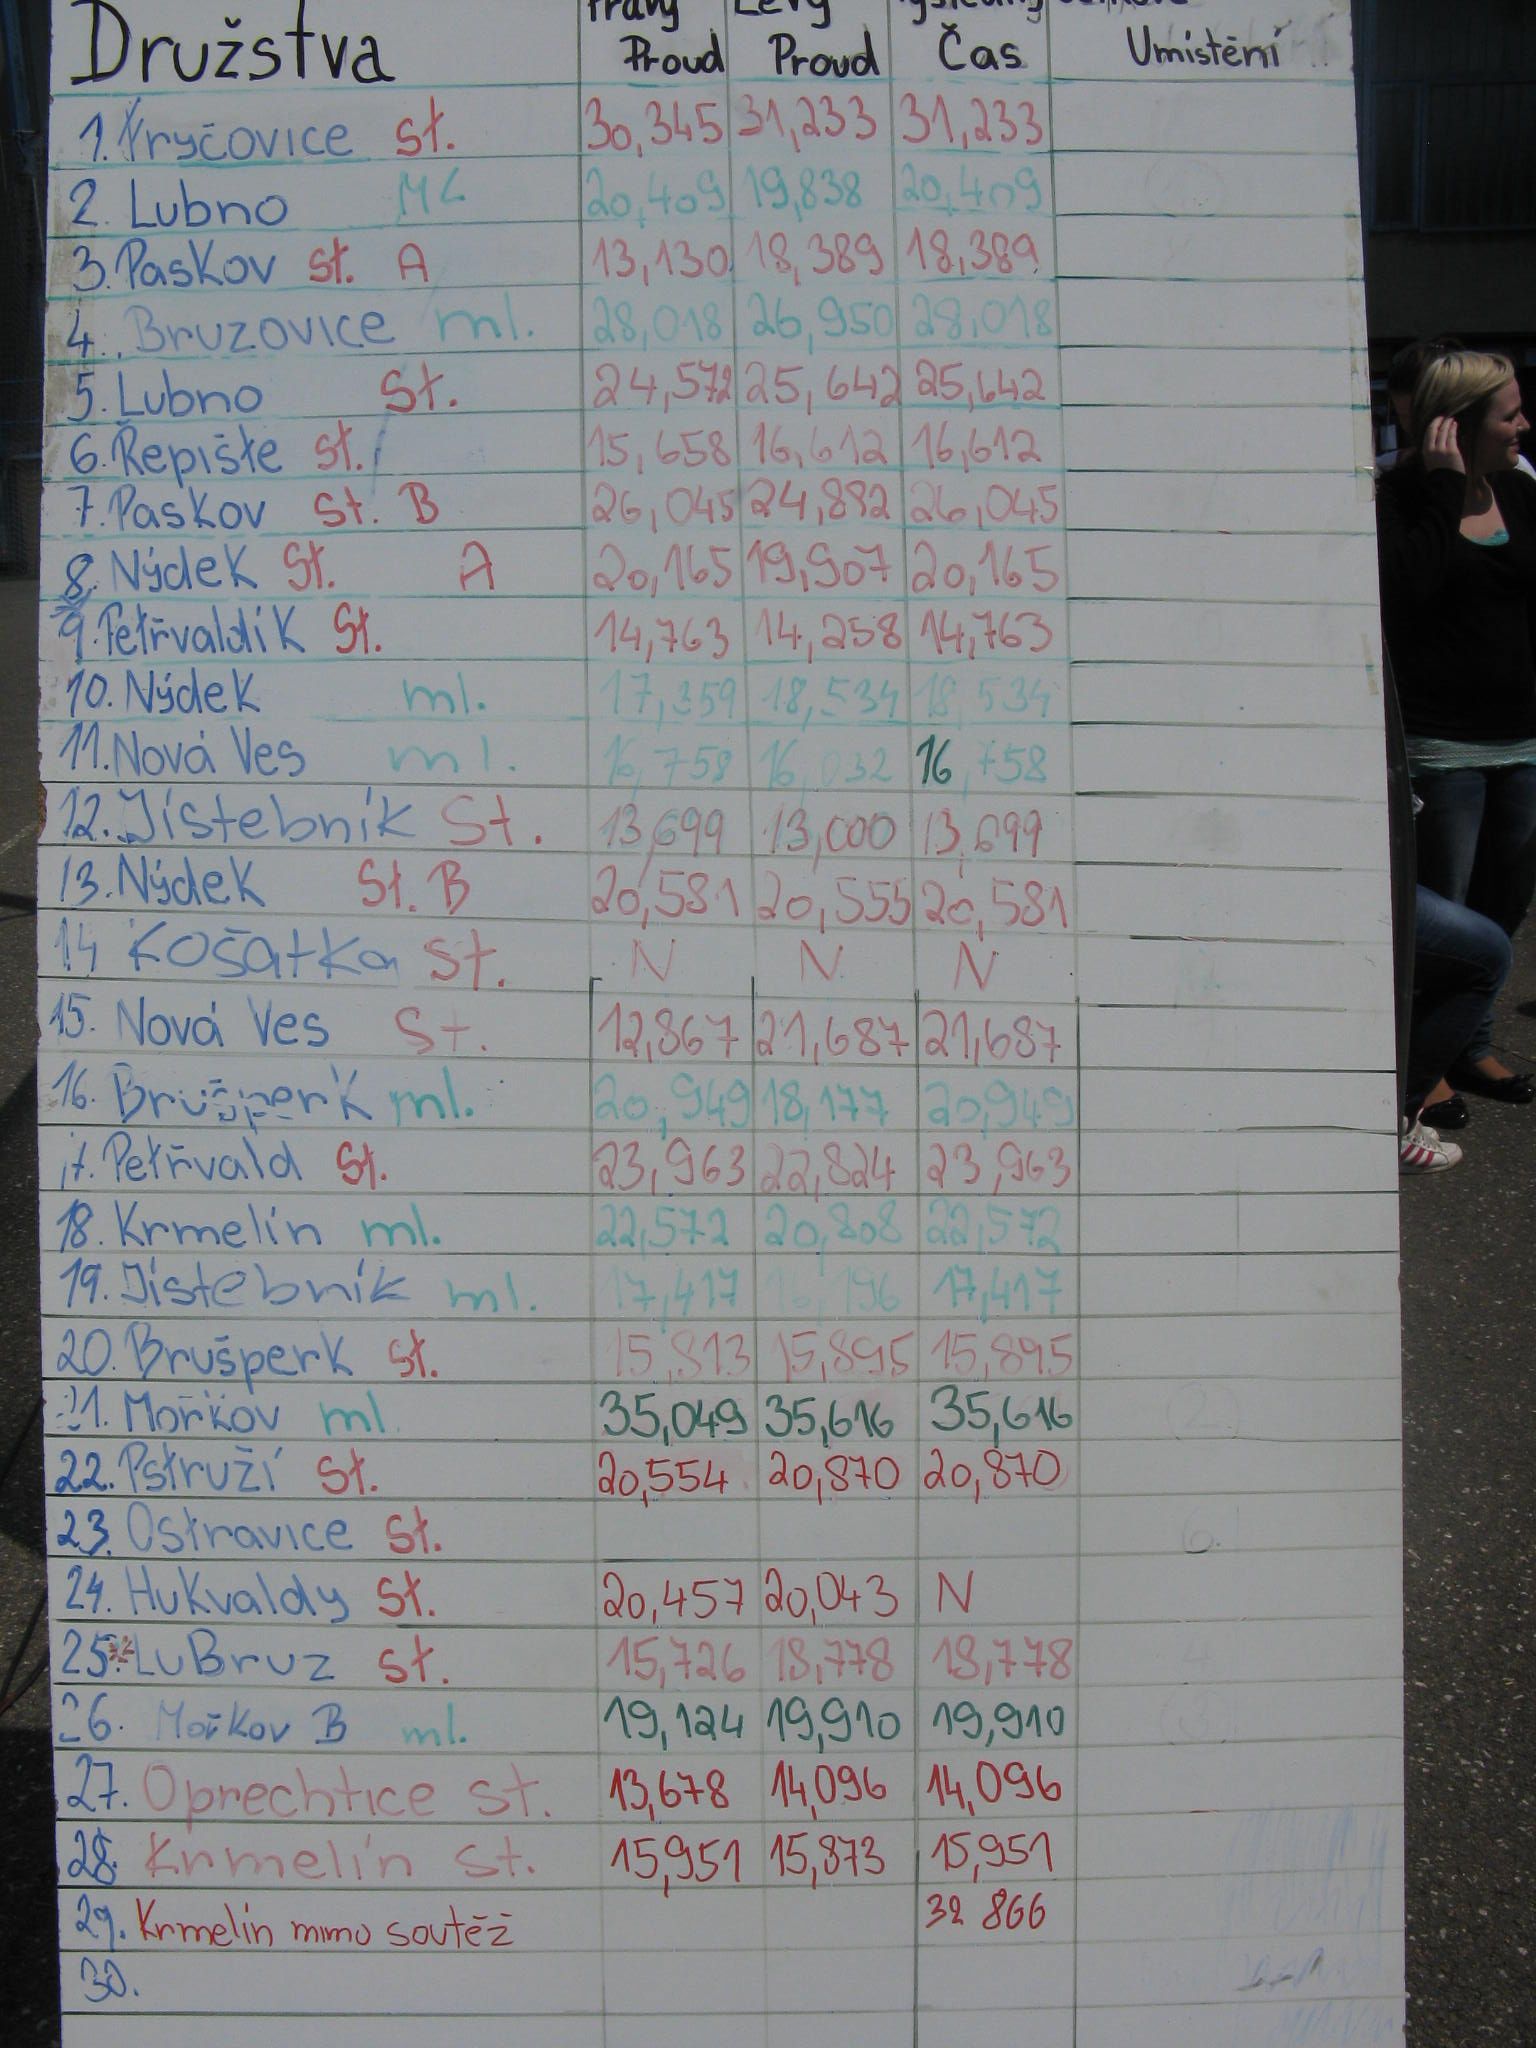 Družstva Pravý Proud Levý Proud Čas Umístění
1. Fryčovice st. 30,345 31,233 31,233
2. Lubno ML 20,409 19,838 20,409
3. Paskov st. A 13,130 18,389 18,389
4. Bruzovice ml. 28,018 26,950 28,018
5. Lubno St. 24,572 25,642 25,642
6. Řepiště st. 15,658 16,612 16,612
7. Paskov st. B 26,045 24,882 26,045
8. Nýdek St. A 20,165 19,907 20,165
9. Petřvaldík St. 14,763 14,258 14,763
10. Nýdek ml. 17,359 18,534 18,534
11. Nová Ves ml. 16,758 16,032 16,758
12. Jistebník St. 13,699 13,000 13,699
13. Nýdek St. B 20,581 20,555 20,581
14 Košatka st. N N N
15. Nová Ves St. 12,867 21,687 21,687
16. Brušperk ml. 20,949 18,177 20,949
17. Petřvald St. 23,963 22,824 23,963
18. Krmelín ml. 22,572 20,808 22,572
19. Jistebník ml. 17,417 16,196 17,417
20. Brušperk st. 15,813 15,895 15,895
21. Mořkov ml. 35,049 35,616 35,616 2
22. Pstruží st. 20,554 20,870 20,870
23. Ostravice st. 6.
24. Hukvaldy st. 20,457 20,043 N
25. LuBruz st. 15,726 18,778 18,778 4
26. Mořkov B ml. 19,124 19,910 19,910 3
27. Oprechtice st. 13,678 14,096 14,096
28. Krmelín st. 15,951 15,873 15,951
29. Krmelín mimo soutěž 32 866
30.